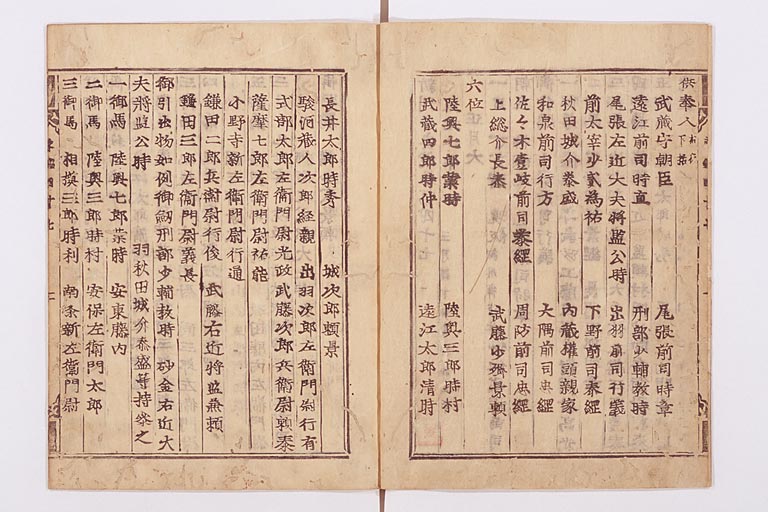 供奉人
武蔵守朝臣 尾張前司時章
遠江前司時直 刑部少輔教時
尾張左近大夫将監公時 出羽前司行義
前太宰少貳為祐 下野前司泰経
秋田城介泰盛 内蔵権頭親家
和泉前司行方 大隅前司忠経
佐々木壱岐前司泰経 周防前司忠経
上総介長泰 武藤少卿景頼
六位
陸奥七郎業時 陸奥三郎時村
武蔵四郎時仲 遠江太郎清時
長井太郎時秀 城次郎頼景
駿河蔵人次郎経親 出羽次郎左衛門尉行有
式部太郎左衛門尉光政 武藤次郎兵衛尉頼泰
薩摩七郎左衛門尉祐能
小野寺新左衛門尉行通
鎌田二郎兵衛尉行俊 武藤右近将監兼頼
鎌田三郎左衛門尉義長
御引出物如例御釼刑部少輔教時 砂金右近大
夫将監公時 羽秋田城介泰盛等持参之
一御馬 陸奥七郎業時 安東藤内
二御馬 陸奥三郎時村 安保左衛門太郎
三御馬 相摸三郎時利 南条新左衛門尉